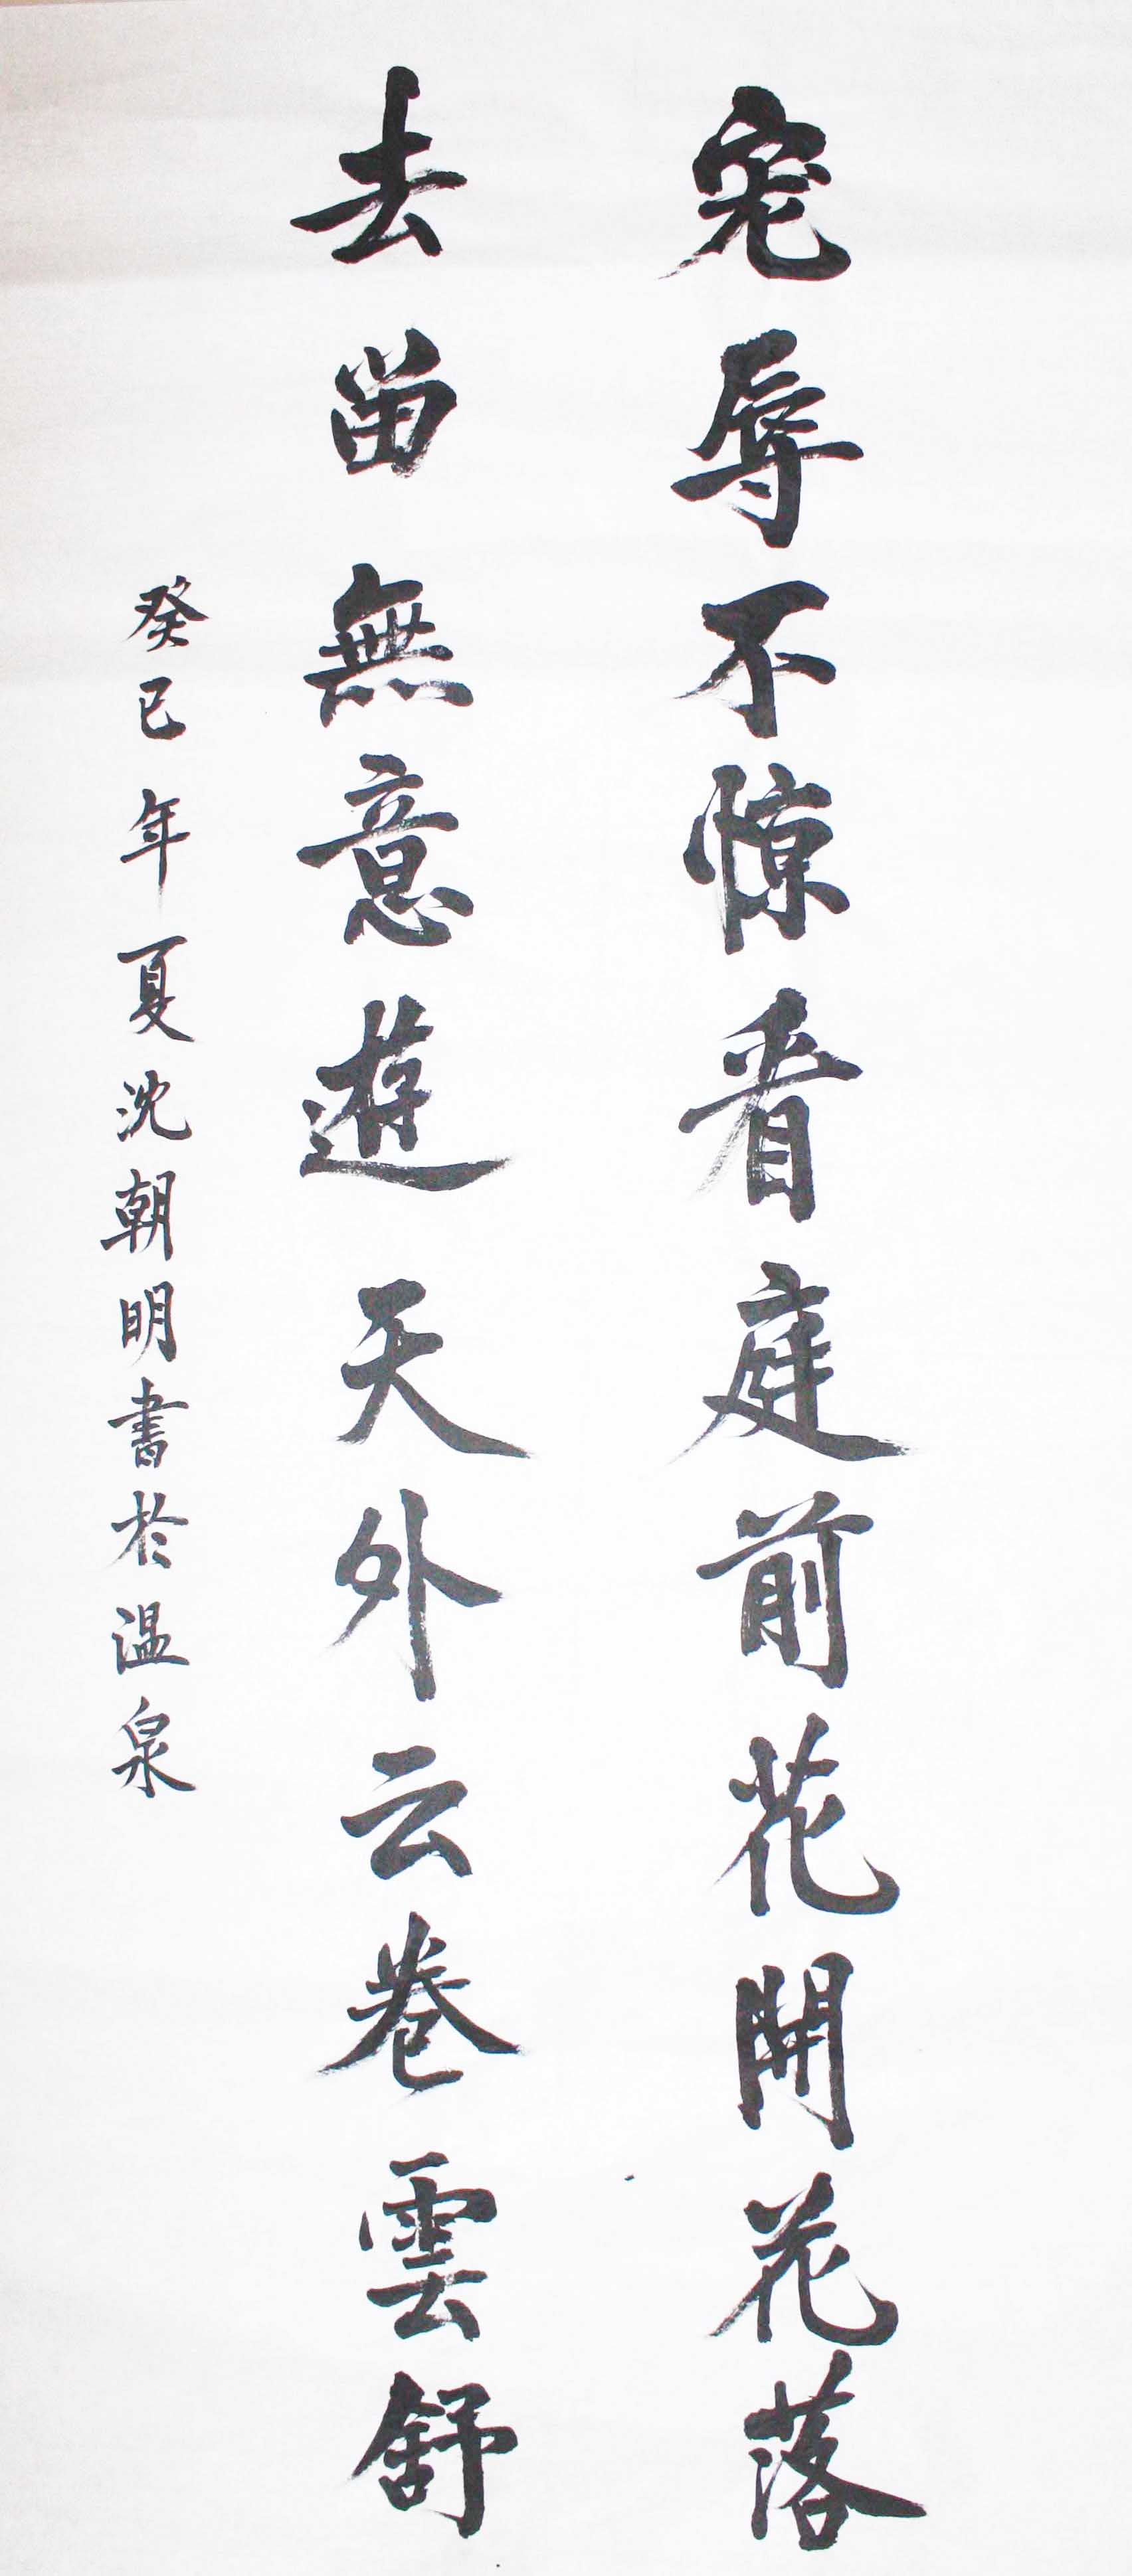 宠辱不惊看庭前花開花落
去留無意遊天外云卷雲舒
癸巳年夏沈朝明書於温泉